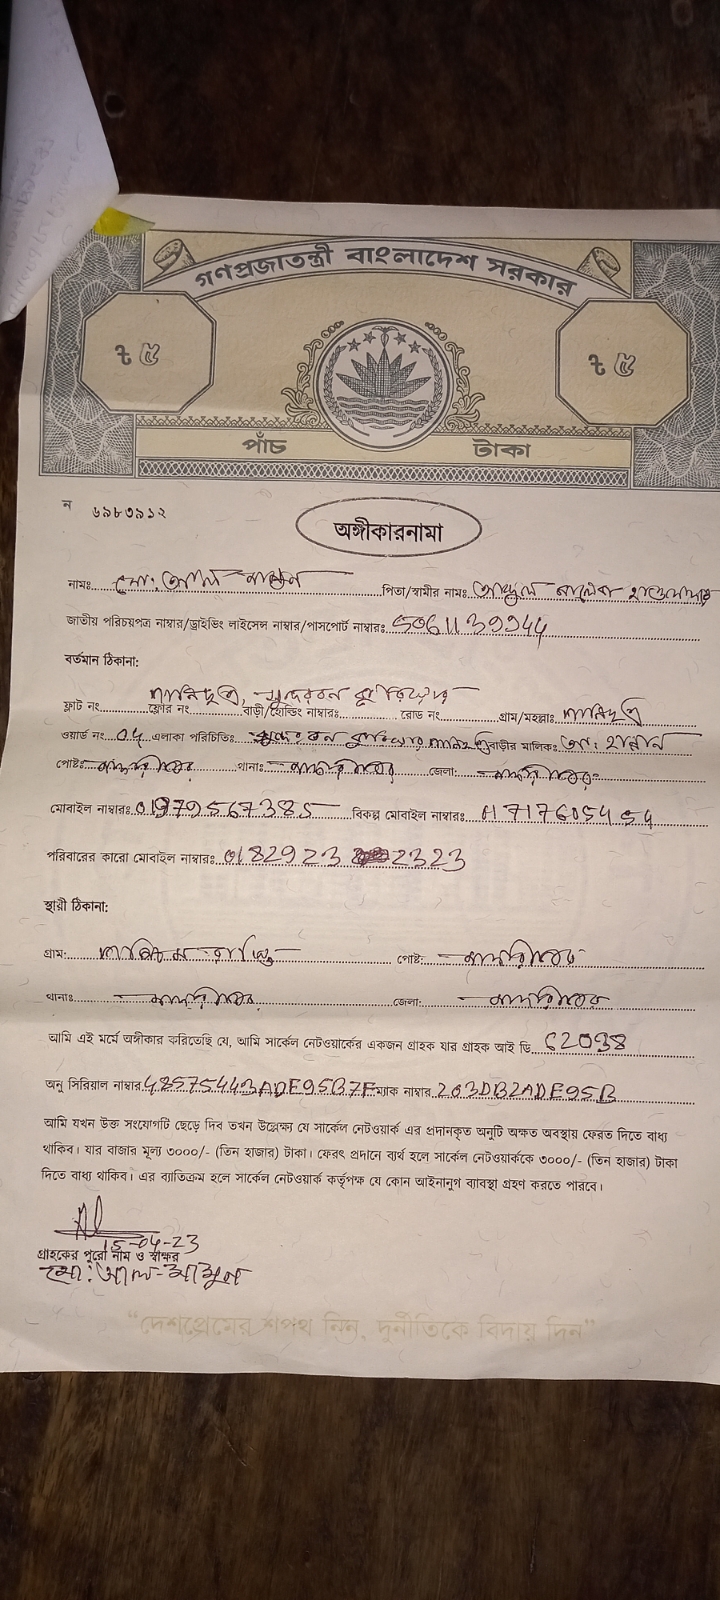 গণপ্রজাতন্ত্রী বাংলাদেশ সরকার
৳ ৫ ৳ ৫
পাঁচ টাকা
ন ৬৯৮৩৯১২
অঙ্গীকারনামা
নামঃ মো: আল মামুন পিতা/স্বামীর নামঃ আব্দুল খালেক হাওলাদার
জাতীয় পরিচয়পত্র নাম্বার/ড্রাইভিং লাইসেন্স নাম্বার/পাসপোর্ট নাম্বারঃ 5061139944
বর্তমান ঠিকানা:
পানিছত্র, সুন্দরবন কুরিয়ার
ফ্লাট নং ফ্লোর নং বাড়ী/হোল্ডিং নাম্বারঃ রোড নং গ্রাম/মহল্লাঃ পানিছত্র
ওয়ার্ড নং 04 এলাকা পরিচিতিঃ সুন্দরবন কুরিয়ার পানিছত্র বাড়ীর মালিকঃ আ: হান্নান
পোষ্টঃ মাদারীপুর থানাঃ মাদারীপুর জেলা: মাদারীপুর
মোবাইল নাম্বারঃ 01979567385 বিকল্প মোবাইল নাম্বারঃ 01717605454
পরিবারের কারো মোবাইল নাম্বারঃ 0182923 2323
স্থায়ী ঠিকানা:
গ্রাম: পোষ্ট: মাদারীপুর
থানাঃ মাদারীপুর জেলা: মাদারীপুর
আমি এই মর্মে অঙ্গীকার করিতেছি যে, আমি সার্কেল নেটওয়ার্কের একজন গ্রাহক যার গ্রাহক আই ডি 62038
অনু সিরিয়াল নাম্বার 48575443ADE95B7F ম্যাক নাম্বার 203DB2ADE95B
আমি যখন উক্ত সংযোগটি ছেড়ে দিব তখন উল্লেখ্য যে সার্কেল নেটওয়ার্ক এর প্রদানকৃত অনুটি অক্ষত অবস্থায় ফেরত দিতে বাধ্য
থাকিব। যার বাজার মূল্য ৩০০০/- (তিন হাজার) টাকা। ফেরৎ প্রদানে ব্যর্থ হলে সার্কেল নেটওয়ার্ককে ৩০০০/- (তিন হাজার) টাকা
দিতে বাধ্য থাকিব। এর ব্যাতিক্রম হলে সার্কেল নেটওয়ার্ক কর্তৃপক্ষ যে কোন আইনানুগ ব্যাবস্থা গ্রহণ করতে পারবে।
15-04-23
গ্রাহকের পুরো নাম ও স্বাক্ষর
মো: আল-মামুন
"দেশপ্রেমের শপথ নিন, দুর্নীতিকে বিদায় দিন"